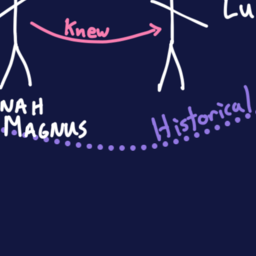 Knew
Lu
NAH
MAGNUS
Historical